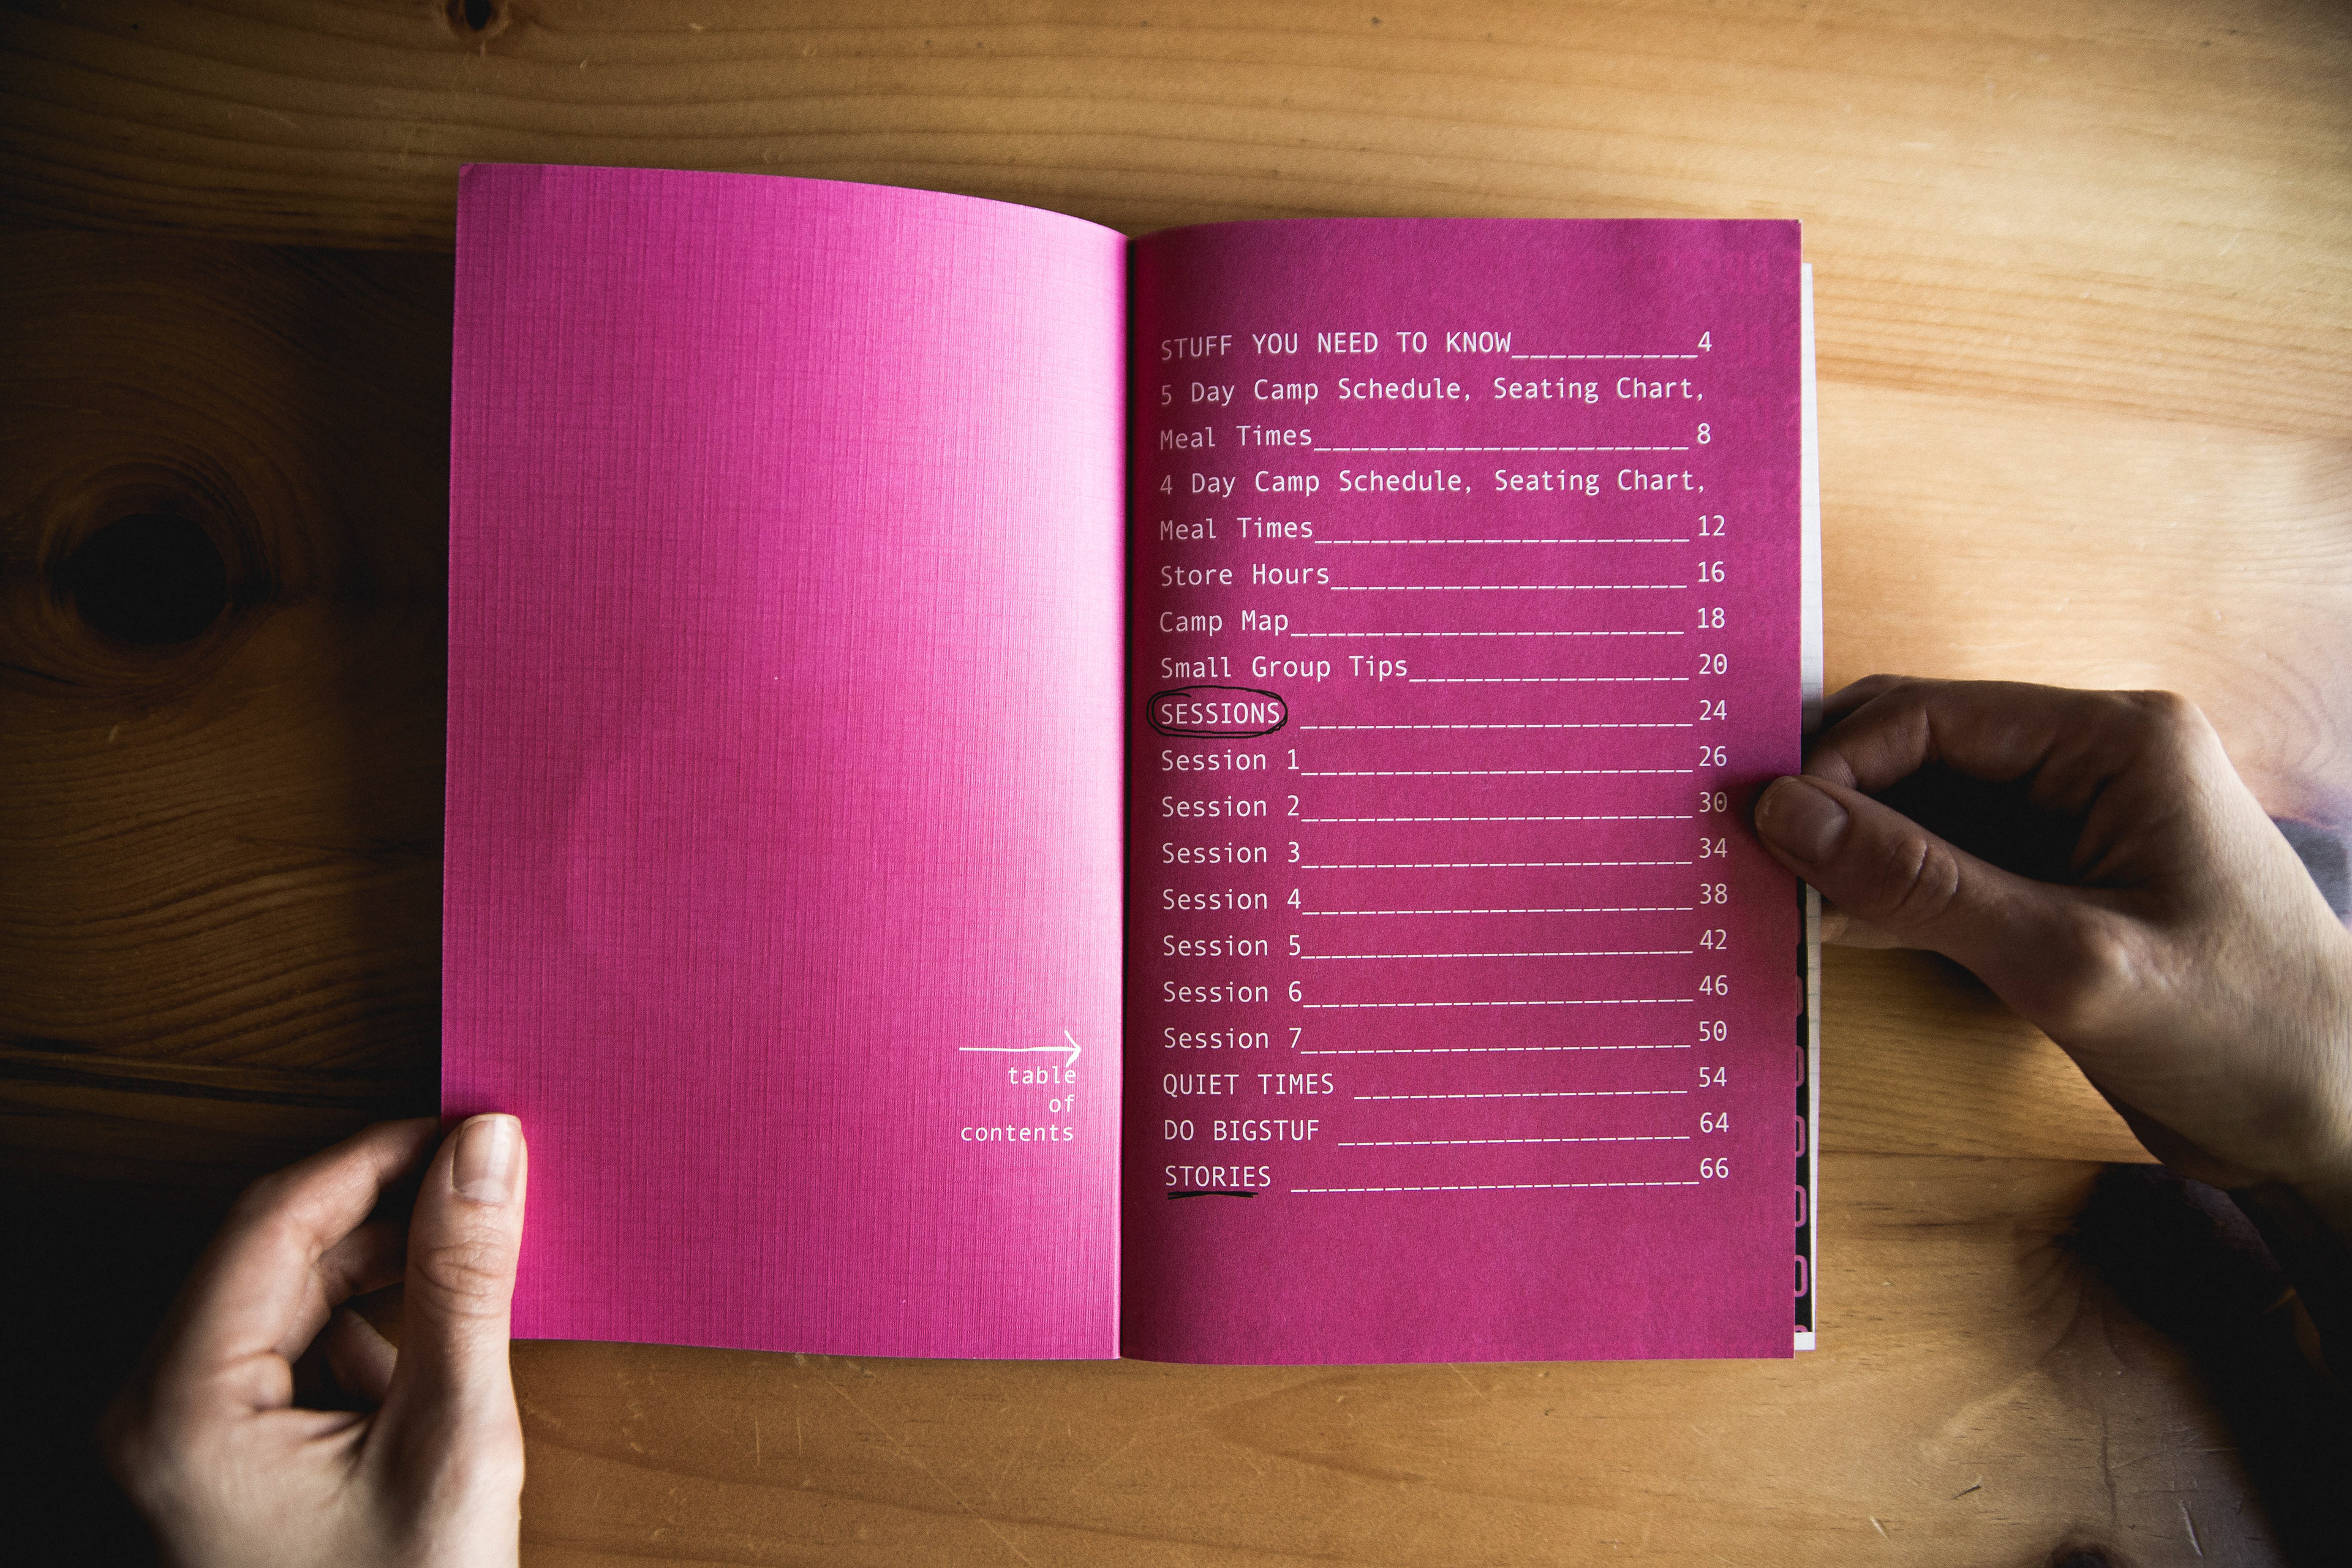 table
of
contents
STUFF YOU NEED TO KNOW__________4
5 Day Camp Schedule, Seating Chart,
Meal Times____________________8
4 Day Camp Schedule, Seating Chart,
Meal Times____________________12
Store Hours___________________16
Camp Map_____________________18
Small Group Tips_______________20
SESSIONS _____________________24
Session 1_____________________26
Session 2_____________________30
Session 3_____________________34
Session 4_____________________38
Session 5_____________________42
Session 6_____________________46
Session 7_____________________50
QUIET TIMES __________________54
DO BIGSTUF ___________________64
STORIES ______________________66